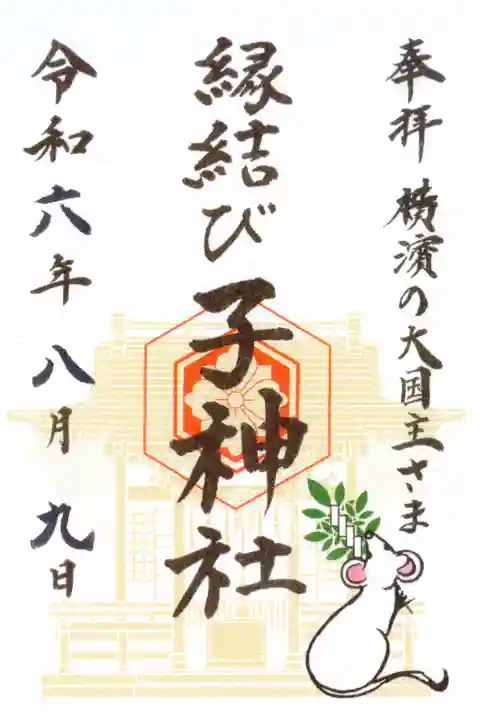 奉拝 横濱の大国主さま
縁結び子神社
令和六年八月九日